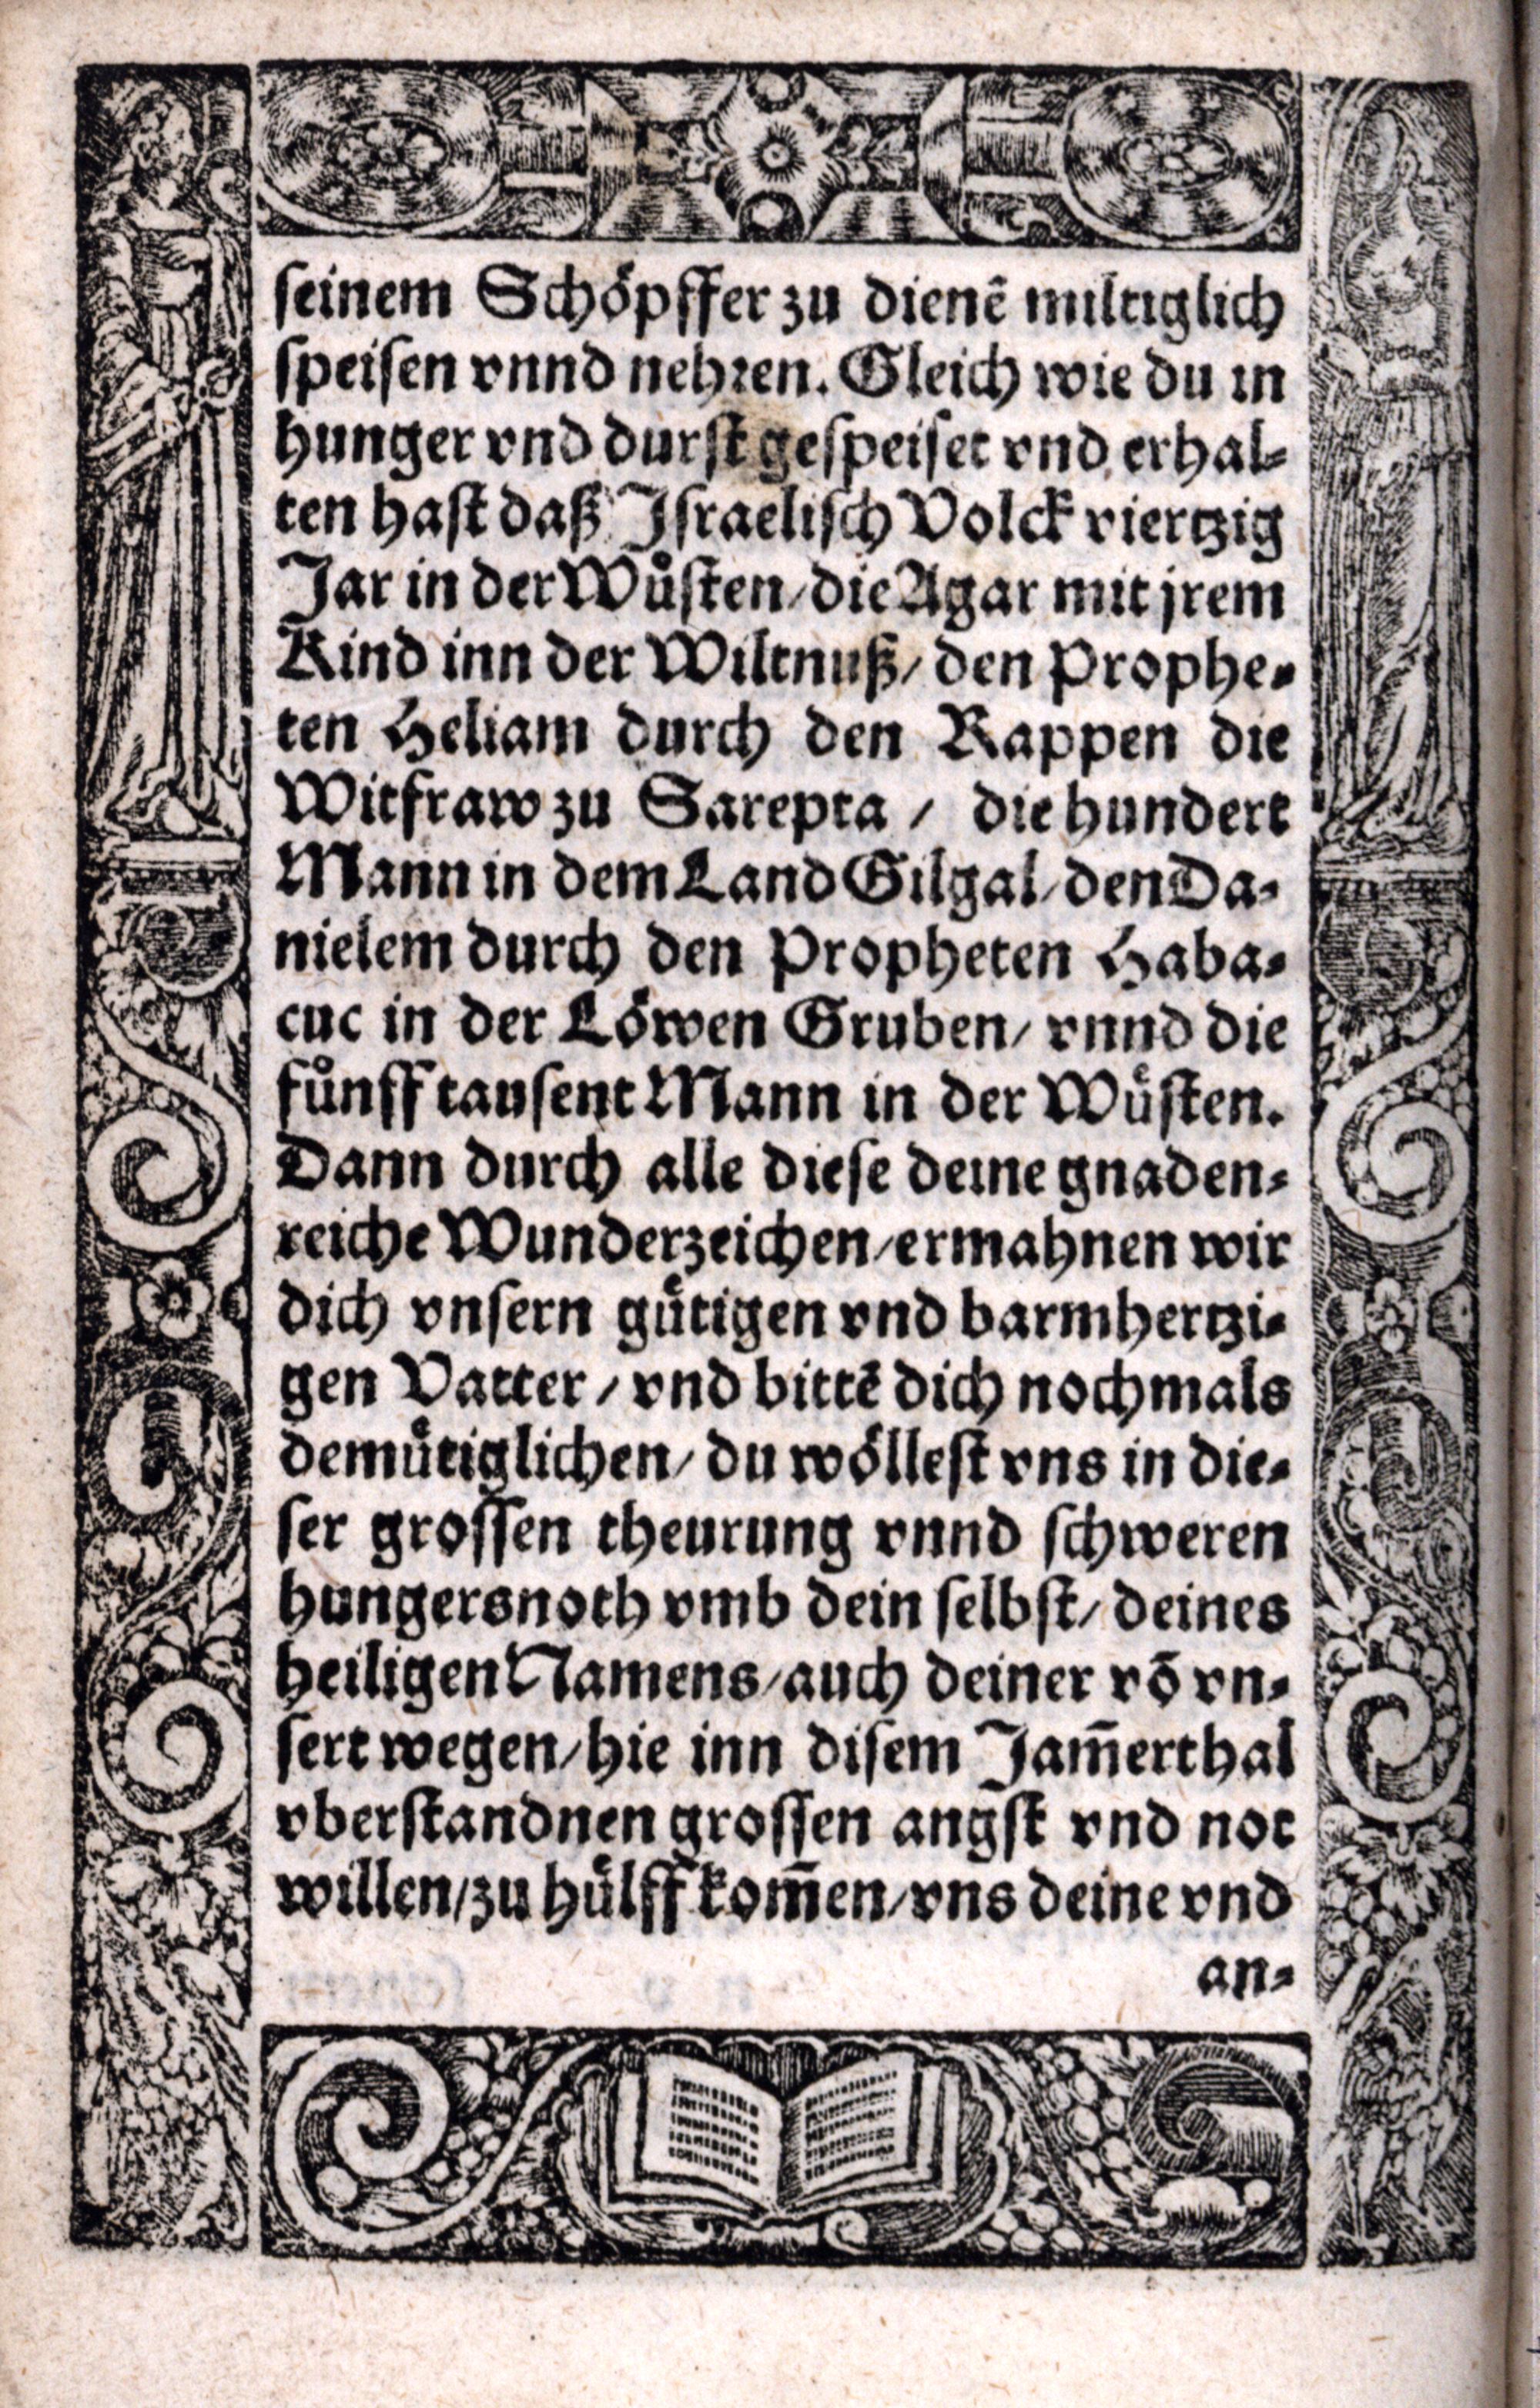 seinem Schöpffer zu dienē miltiglich
speisen vnnd nehren. Gleich wie du in
hunger vnd durst gespeiset vnd erhal-
ten hast daß Israelisch Volck viertzig
Jar in der Wůsten/die Agar mit jrem
Kind inn der Wiltnuß/ den Prophe-
ten Heliam durch den Rappen die
Witfraw zu Sarepta / die hundert
Mann in dem Land Gilgal/den Da-
nielem durch den Propheten Haba-
cuc in der Löwen Gruben/ vnnd die
fůnff tausent Mann in der Wüsten.
Dann durch alle diese deine gnaden-
reiche Wunderzeichen/ermahnen wir
dich vnsern gütigen vnd barmhertzi-
gen Vatter / vnd bittē dich nochmals
demütiglichen/ du wöllest vns in die-
ser grossen theurung vnnd schweren
hungersnoth vmb dein selbst/ deines
heiligen Namens/auch deiner võ vn-
sert wegen/hie inn disem Jam̄erthal
vberstandnen grossen angst vnd not
willen/zu hülff kom̄en/vns deine vnd
an-